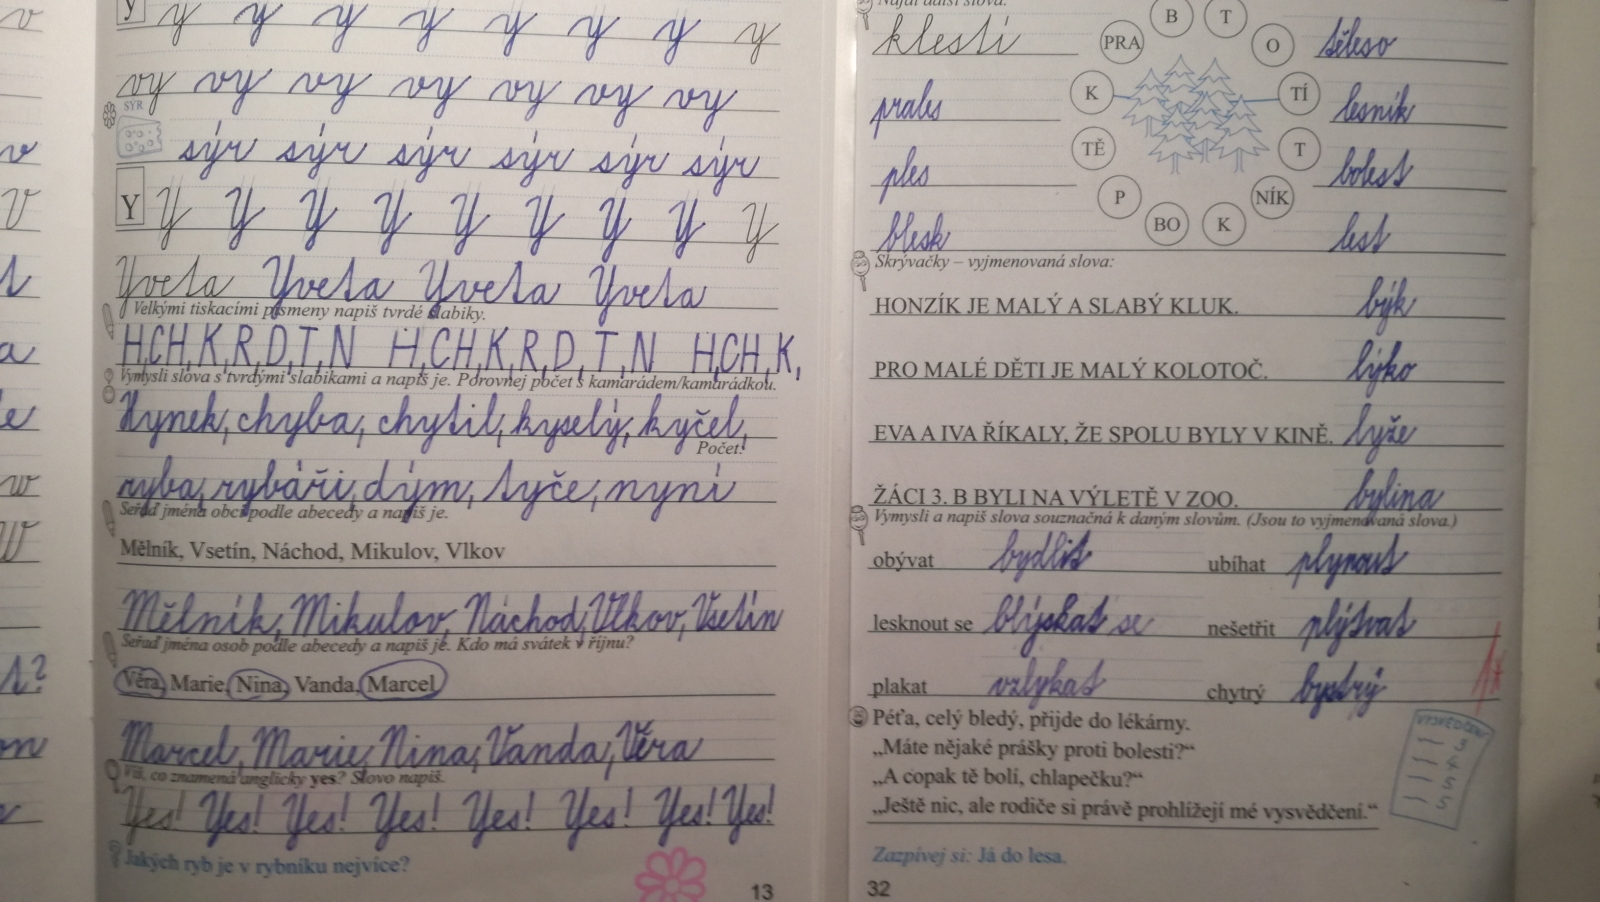 y y y y y y y y y
vy vy vy vy vy vy vy
SÝR
sýr sýr sýr sýr sýr sýr
Y Y Y Y Y Y Y Y Y Y
Yveta Yveta Yveta Yveta
Velkými tiskacími písmeny napiš tvrdé slabiky.
H,CH,K,R,D,T,N H,CH,K,R,D,T,N H,CH,K,
Vymysli slova s tvrdými slabikami a napiš je. Porovnej počet s kamarádem/kamarádkou.
Hynek, chyba, chytil, kyselý, kyčel,
Počet:
ryba, rybáři, dým, tyče, nyní
Seřaď jména obcí podle abecedy a napiš je.
Mělník, Vsetín, Náchod, Mikulov, Vlkov
Mělník, Mikulov, Náchod, Vlkov, Vsetín
Seřaď jména osob podle abecedy a napiš je. Kdo má svátek v říjnu?
Věra, Marie, Nina, Vanda, Marcel
Marcel, Marie, Nina, Vanda, Věra
Víš, co znamená anglicky yes? Slovo napiš.
Yes! Yes! Yes! Yes! Yes! Yes! Yes! Yes!
Jakých ryb je v rybníku nejvíce?
13
Najdi další slova.
klestí
prales
ples
blesk
těleso
lesník
bolest
lest
B
T
O
TÍ
T
NÍK
K
BO
P
TĚ
K
PRA
Skrývačky – vyjmenovaná slova:
HONZÍK JE MALÝ A SLABÝ KLUK. býk
PRO MALÉ DĚTI JE MALÝ KOLOTOČ. lýko
EVA A IVA ŘÍKALY, ŽE SPOLU BYLY V KINĚ. lyže
ŽÁCI 3. B BYLI NA VÝLETĚ V ZOO. bylina
Vymysli a napiš slova souznačná k daným slovům. (Jsou to vyjmenovaná slova.)
obývat bydlit ubíhat plynout
lesknout se blýskat se nešetřit plýtvat
plakat vzlykat chytrý bystrý
1*
Péťa, celý bledý, přijde do lékárny.
„Máte nějaké prášky proti bolesti?“
„A copak tě bolí, chlapečku?“
„Ještě nic, ale rodiče si právě prohlížejí mé vysvědčení.“
VYSVĚDČENÍ
Zazpívej si: Já do lesa.
32